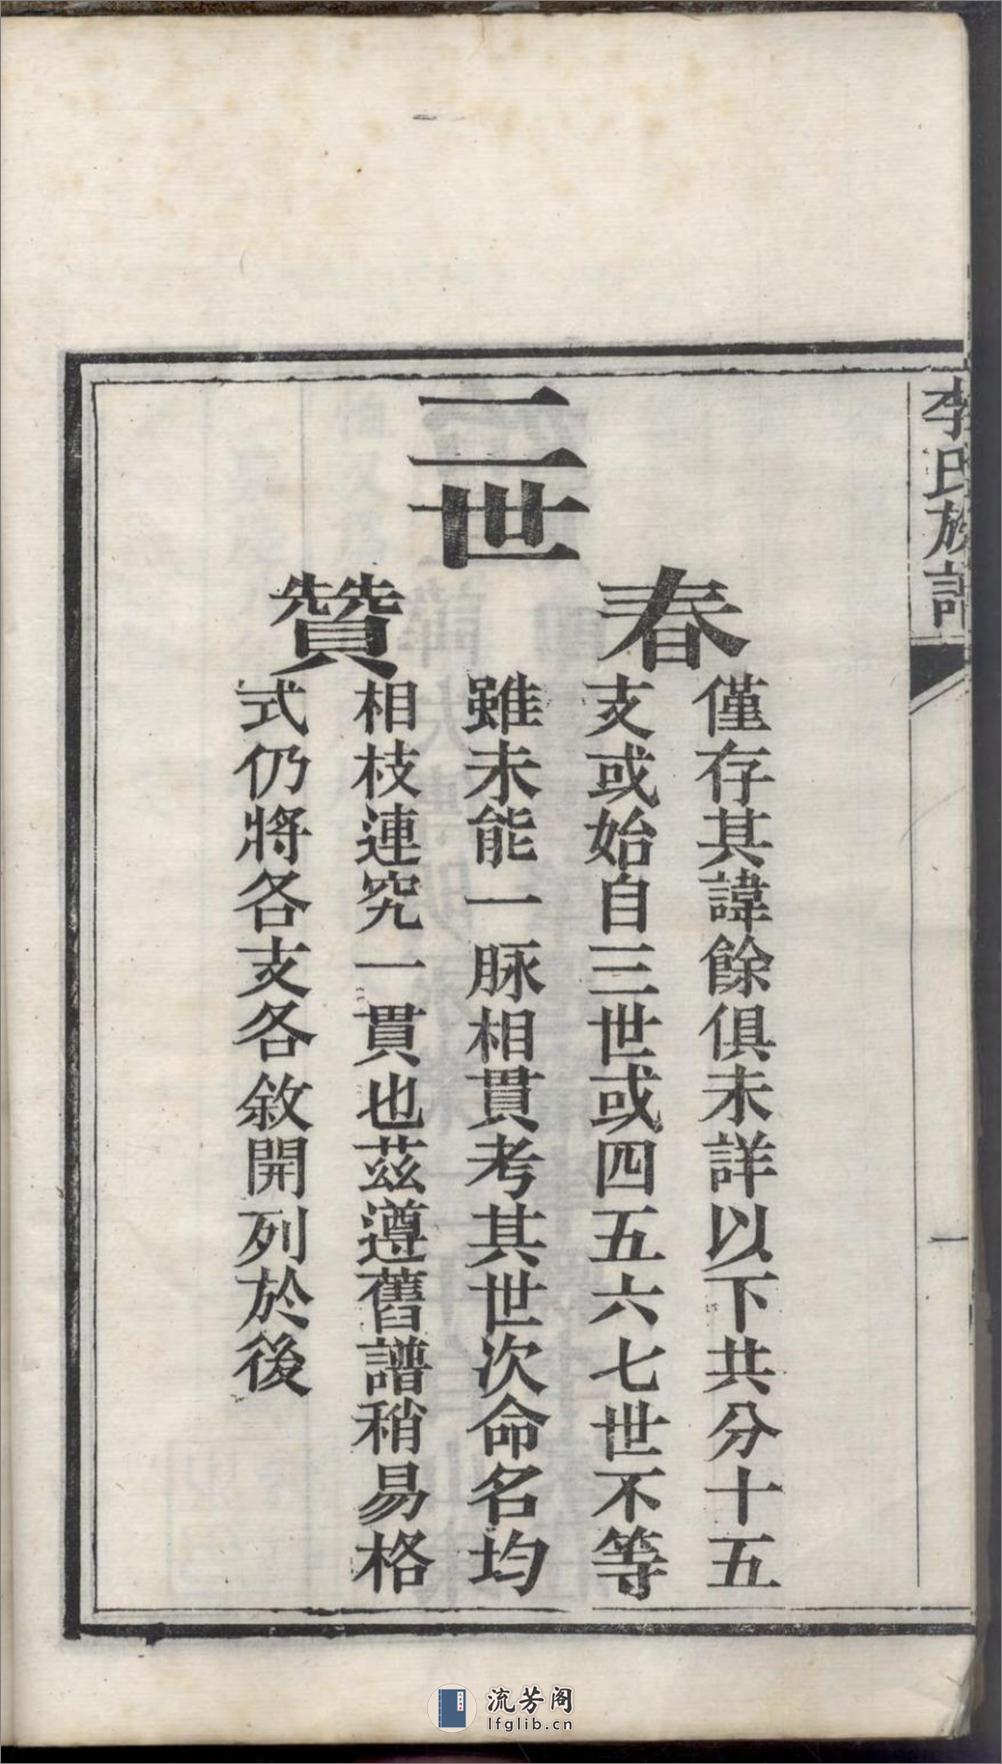 李氏族譜
一
二世
春
僅存其諱餘俱未詳以下共分十五
支或始自三世或四五六七世不等
雖未能一脉相貫考其世次命名均
相枝連究一貫也茲遵舊譜稍易格
贊
式仍將各支各敘開列於後
流芳阁
lfglib.cn